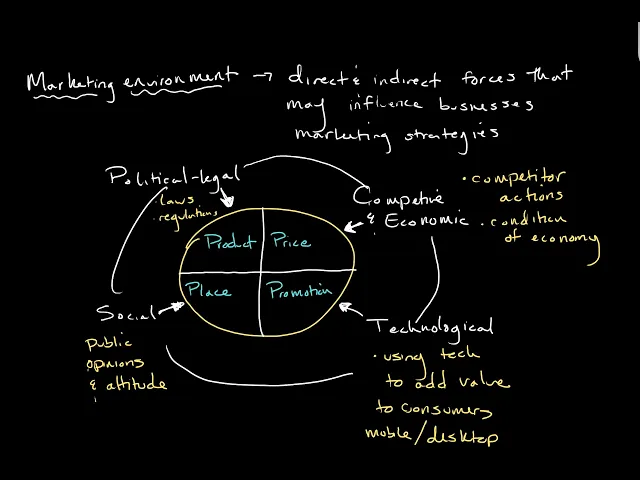 Marketing environment → direct & indirect forces that
may influence businesses
marketing strategies
Political-legal
• laws
• regulations
Competive
& Economic
• competitor
actions
• condition
of economy
Product
Price
Place
Promotion
Social
public
opinions
& attitude
Technological
• using tech
to add value
to consumers
moble/desktop